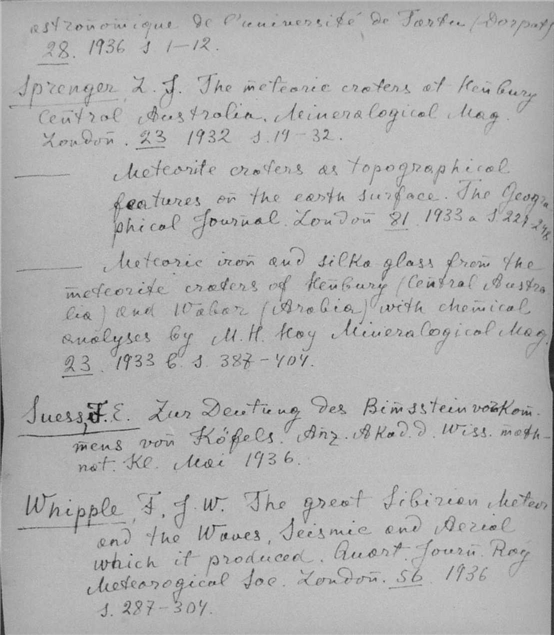 astronomique de l'université de Tartu (Dorpat)
28. 1936 S. 1-12.
Sprenger, L. J. The meteoric craters at Henbury
Central Australia. Mineralogical Mag.
London. 23 1932 S. 19-32.
—— Meteorite craters as topographical
features on the earth surface. The Geogra
phical Journal. London 81. 1933 a S 227-248
—— Meteoric iron and silka glass from the
meteorite craters of Henbury (Central Austra
lia) and Wabar (Arabia) with chemical
analyses by M. H. Hey Mineralogical Mag.
23. 1933 b. S. 387-404.
Suess, F. E. Zur Deutung des Bimssteinvorkom.
mens von Köfels. Anz. Akad. d. Wiss. math-
nat. Kl. Mai 1936.
Whipple, F. J. W. The great Sibirian Meteor
and the Waves, Seismic and Aerial
which it produced. Quart Journ. Roy
Meteorogical Soc. London. 56. 1936
S. 287-304.